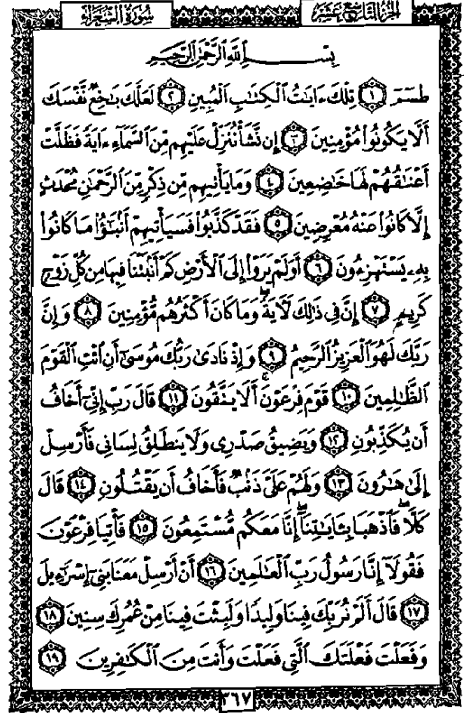 الجزء التاسع عشر
سُورَةُ الشُّعَرَاءِ
بِسْمِ اللَّهِ الرَّحْمَٰنِ الرَّحِيمِ
طسٓمٓ ١ تِلْكَ ءَايَٰتُ ٱلْكِتَٰبِ ٱلْمُبِينِ ٢ لَعَلَّكَ بَٰخِعٌ نَّفْسَكَ
أَلَّا يَكُونُوا۟ مُؤْمِنِينَ ٣ إِن نَّشَأْ نُنَزِّلْ عَلَيْهِم مِّنَ ٱلسَّمَآءِ ءَايَةً فَظَلَّتْ
أَعْنَٰقُهُمْ لَهَا خَٰضِعِينَ ٤ وَمَا يَأْتِيهِم مِّن ذِكْرٍ مِّنَ ٱلرَّحْمَٰنِ مُحْدَثٍ
إِلَّا كَانُوا۟ عَنْهُ مُعْرِضِينَ ٥ فَقَدْ كَذَّبُوا۟ فَسَيَأْتِيهِمْ أَنۢبَٰٓؤُا۟ مَا كَانُوا۟
بِهِۦ يَسْتَهْزِءُونَ ٦ أَوَلَمْ يَرَوْا۟ إِلَى ٱلْأَرْضِ كَمْ أَنۢبَتْنَا فِيهَا مِن كُلِّ زَوْجٍ
كَرِيمٍ ٧ إِنَّ فِى ذَٰلِكَ لَءَايَةً ۖ وَمَا كَانَ أَكْثَرُهُم مُّؤْمِنِينَ ٨ وَإِنَّ
رَبَّكَ لَهُوَ ٱلْعَزِيزُ ٱلرَّحِيمُ ٩ وَإِذْ نَادَىٰ رَبُّكَ مُوسَىٰٓ أَنِ ٱئْتِ ٱلْقَوْمَ
ٱلظَّٰلِمِينَ ١٠ قَوْمَ فِرْعَوْنَ ۚ أَلَا يَتَّقُونَ ١١ قَالَ رَبِّ إِنِّىٓ أَخَافُ
أَن يُكَذِّبُونِ ١٢ وَيَضِيقُ صَدْرِى وَلَا يَنطَلِقُ لِسَانِى فَأَرْسِلْ
إِلَىٰ هَٰرُونَ ١٣ وَلَهُمْ عَلَىَّ ذَنۢبٌ فَأَخَافُ أَن يَقْتُلُونِ ١٤ قَالَ
كَلَّا ۖ فَٱذْهَبَا بِـَٔايَٰتِنَآ ۖ إِنَّا مَعَكُم مُّسْتَمِعُونَ ١٥ فَأْتِيَا فِرْعَوْنَ
فَقُولَآ إِنَّا رَسُولُ رَبِّ ٱلْعَٰلَمِينَ ١٦ أَنْ أَرْسِلْ مَعَنَا بَنِىٓ إِسْرَٰٓءِيلَ
١٧ قَالَ أَلَمْ نُرَبِّكَ فِينَا وَلِيدًا وَلَبِثْتَ فِينَا مِنْ عُمُرِكَ سِنِينَ ١٨
وَفَعَلْتَ فَعْلَتَكَ ٱلَّتِى فَعَلْتَ وَأَنتَ مِنَ ٱلْكَٰفِرِينَ ١٩
٣٦٧